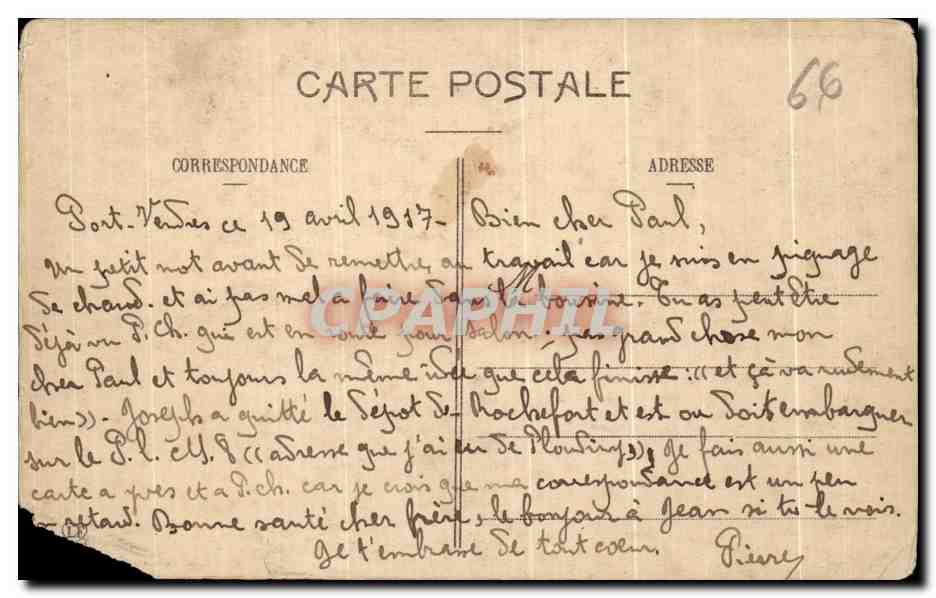 CARTE POSTALE
66
CORRESPONDANCE
ADRESSE
Port-Vendres ce 19 avril 1917- Bien cher Paul,
un petit mot avant de remettre, au travail car je suis en piquage
de chaud. et ai pas mal a faire dans la bousine. Tu as peut être
déjà vu P. Ch. qui est en route pour Salon, pas grand chose mon
cher Paul et toujours la même idée que cela finisse: ((et çà va rudement
bien)). Joseph a quitté le dépot de Rochefort et est ou doit embarquer
sur le P. L. M. 8 ((adresse que j'ai eu de Ploudiry)), je fais aussi une
carte a yves et a P. ch. car je crois que ma correspondance est un peu
en retard. Bonne santé cher frère, le bonjour à Jean si tu le vois.
Je t'embrasse de tout coeur. Pierre
CPAPHIL